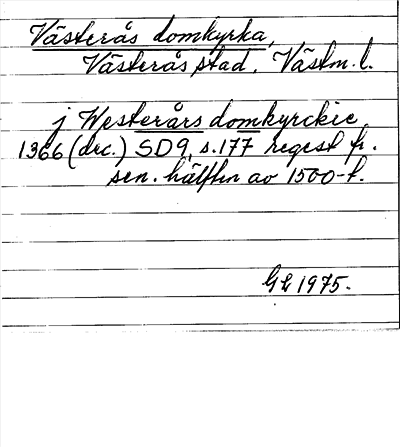 Västerås domkyrka,
Västerås stad, Västm. l.
j Westerårs domkyrckie
1366 (dec.) SD9, s.177 regest fr.
sen. hälften av 1500-t.
GL 1975.